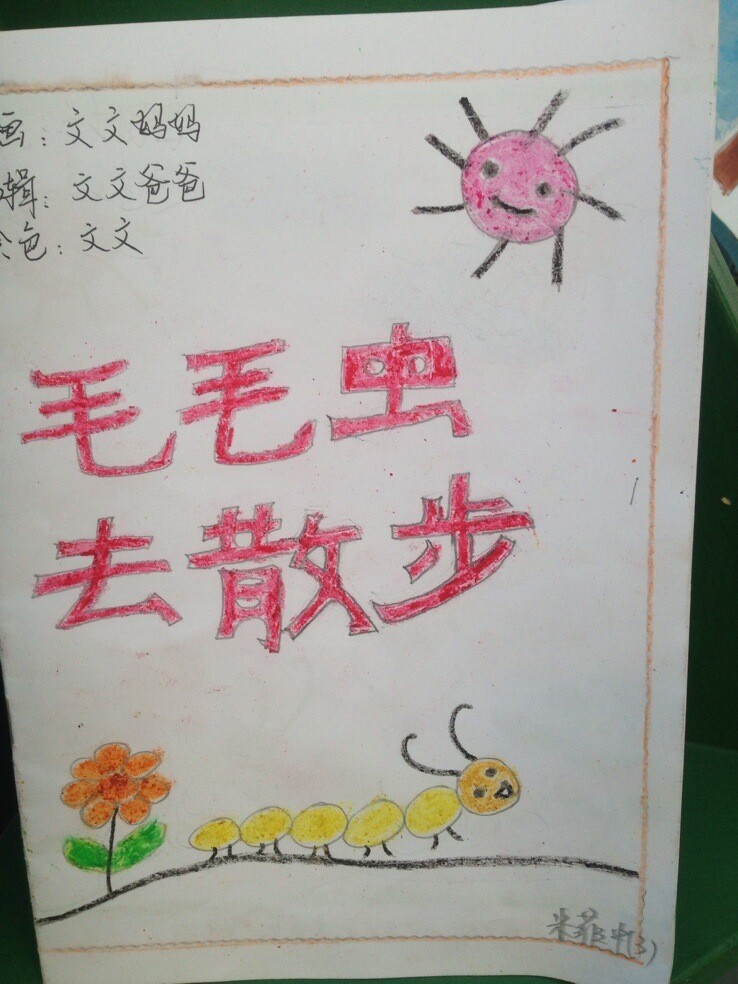 画：文文妈妈
辑：文文爸爸
色：文文
毛毛虫
去散步